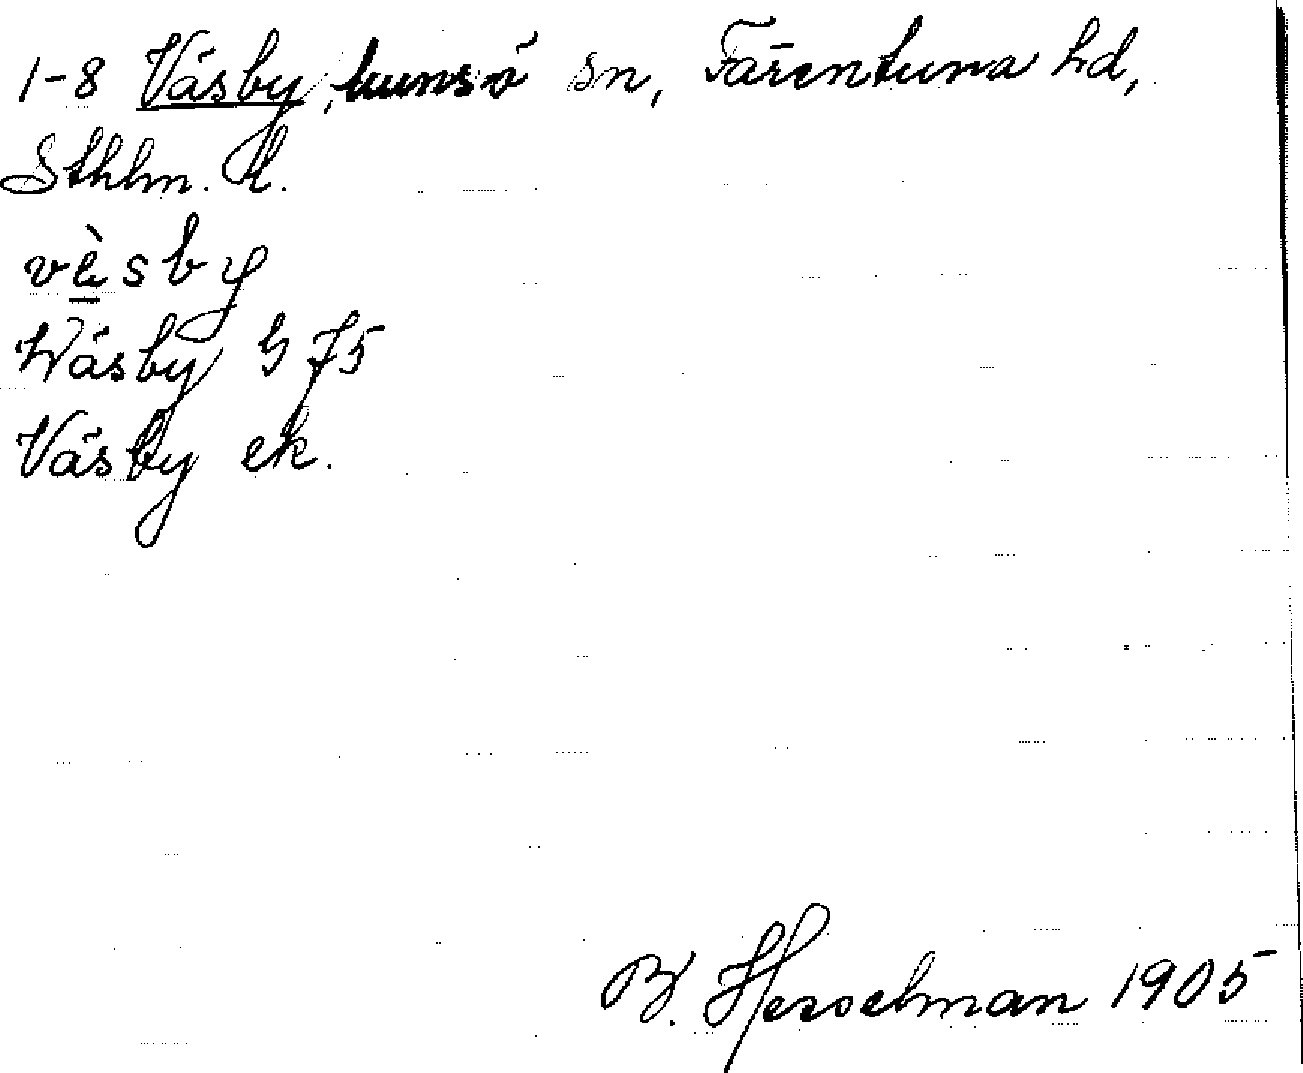 1-8 Väsby, Munsö sn, Färentuna hd,
Sthlm. l.
vè̱sby
Wäsby G 75
Väsby ek.
B. Hesselman 1905